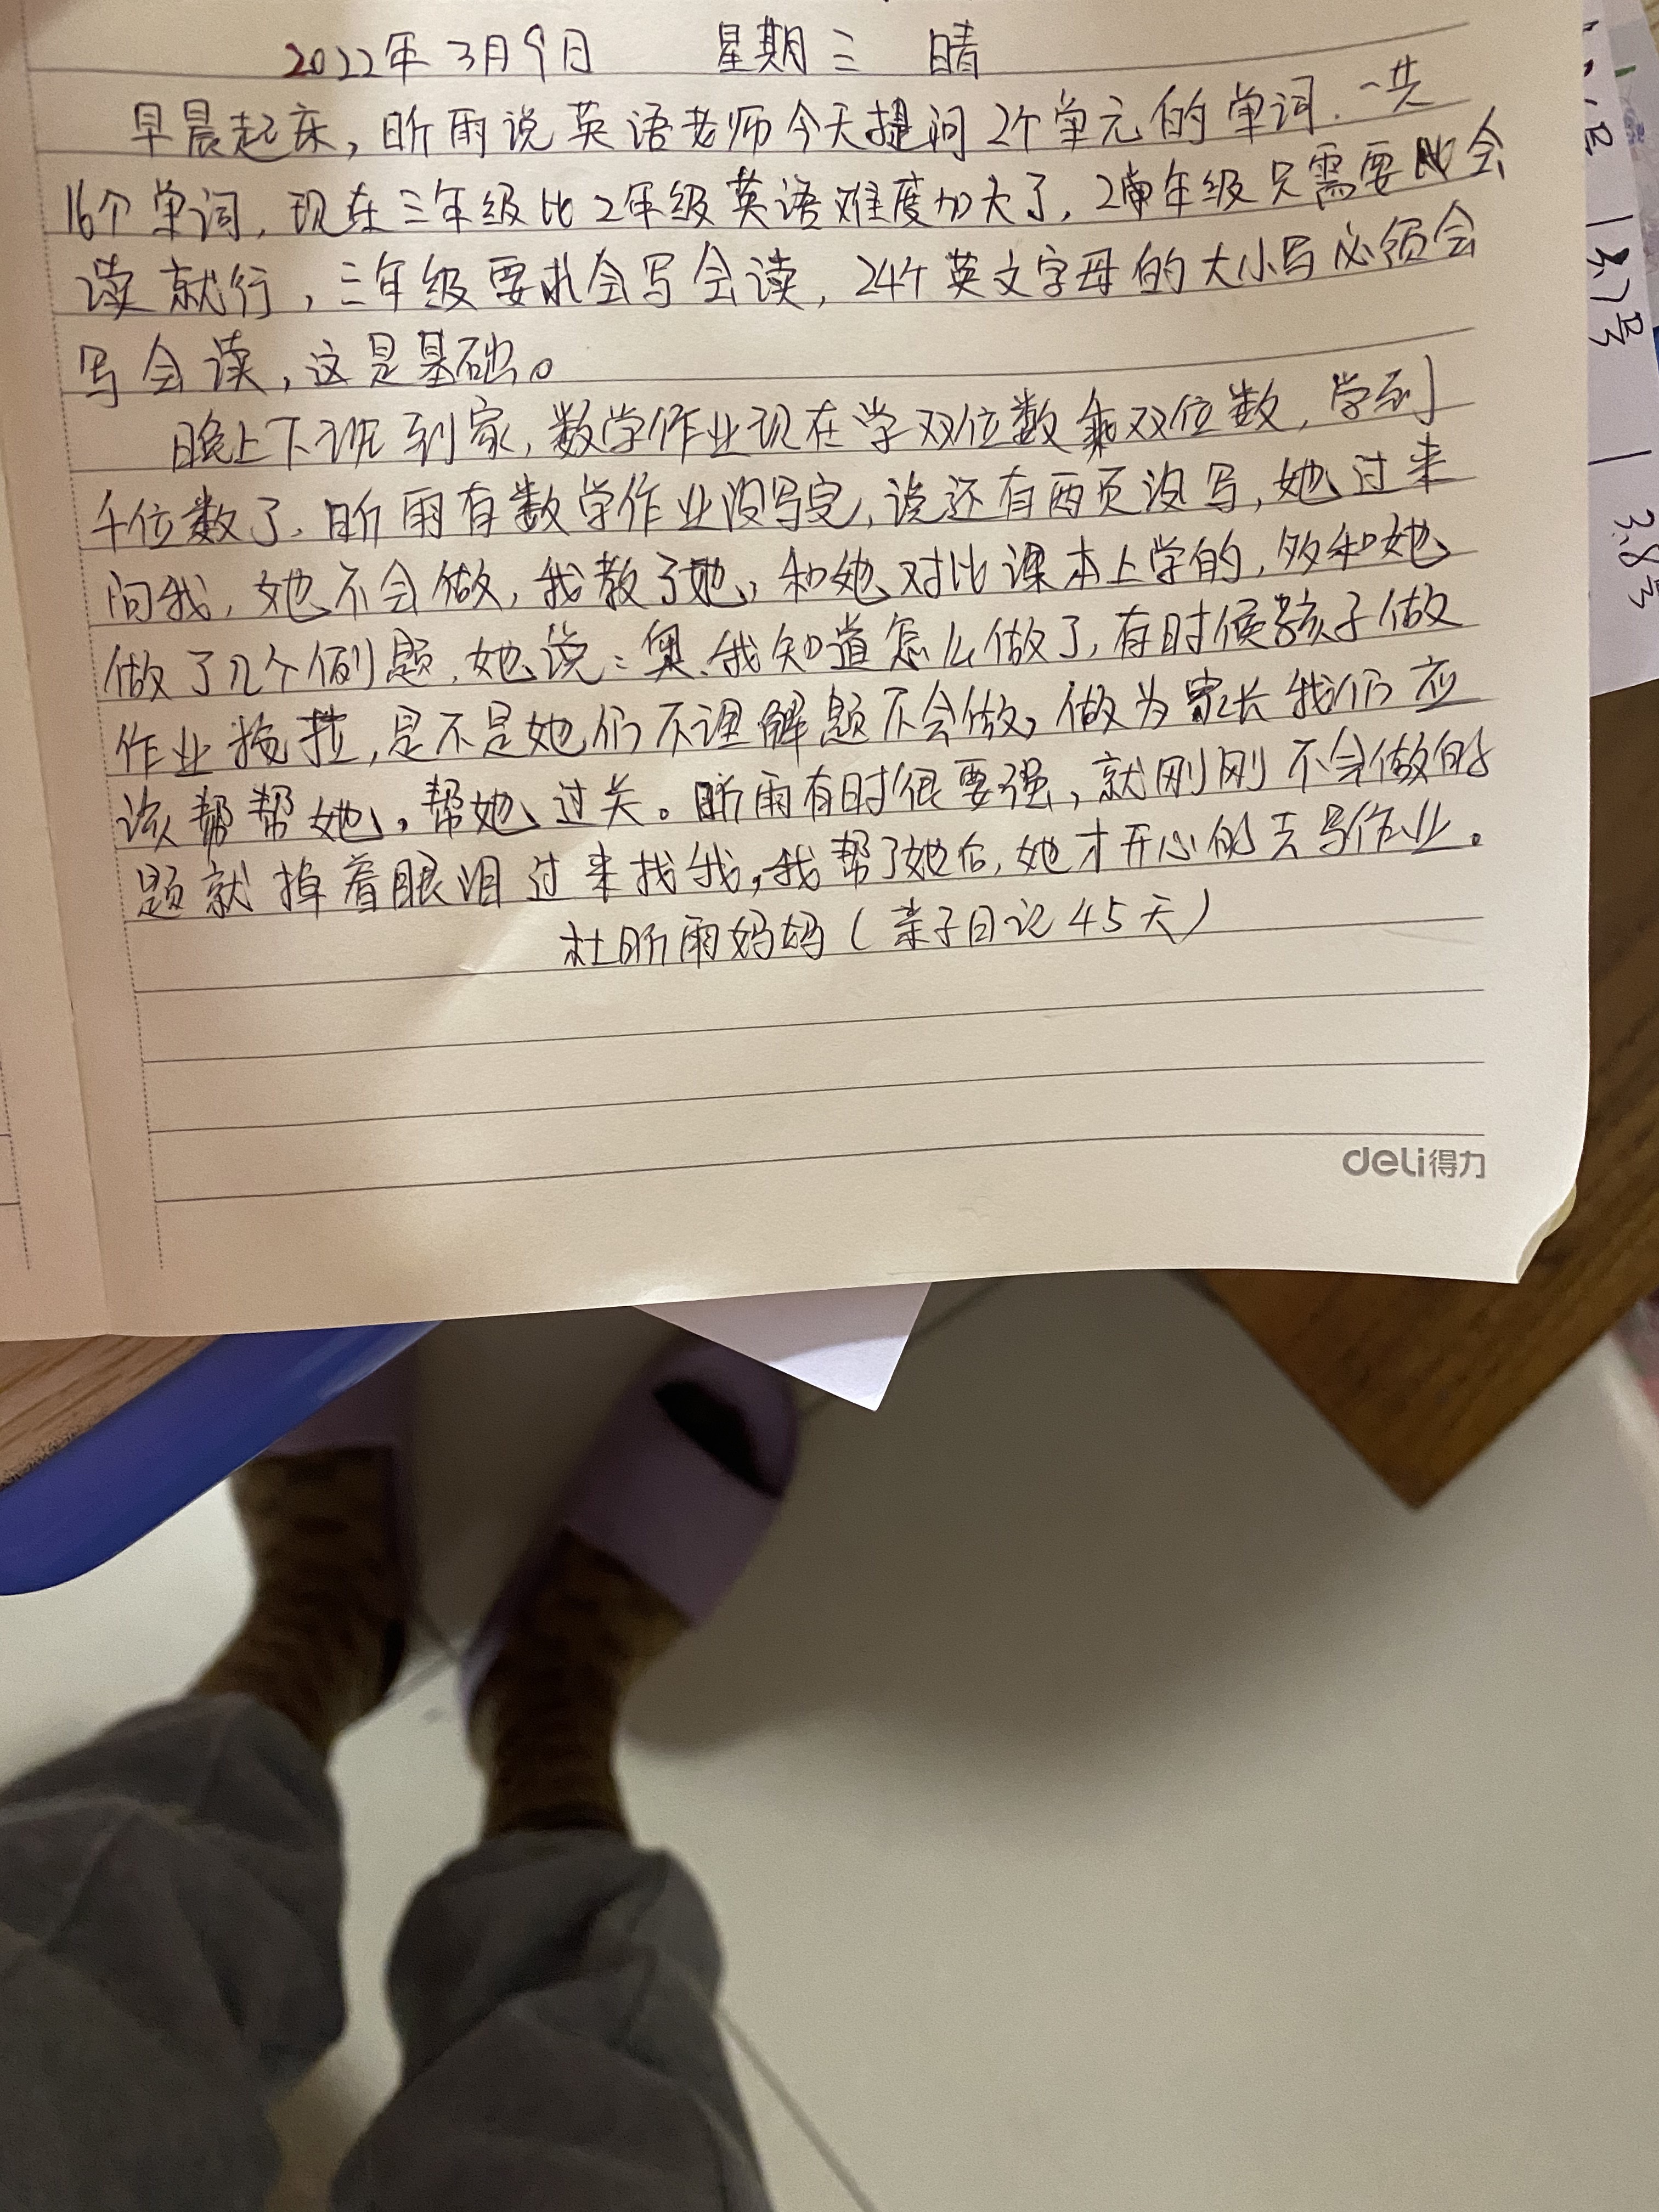 2022年3月9日 星期三 晴
早晨起床,昕雨说英语老师今天提问2个单元的单词.一共
16个单词,现在三年级比2年级英语难度加大了,2年级只需要会
读就行,三年级要求会写会读,24个英文字母的大小写必须会
写会读,这是基础。
晚上下班到家,数学作业现在学双位数乘双位数,学到
千位数了.昕雨有数学作业没写完,说还有两页没写,她过来
问我,她不会做,我教了她,和她对比课本上学的,多和她
做了几个例题,她说:奥.我知道怎么做了,有时候孩子做
作业拖拉,是不是她们不理解题不会做,做为家长我们应
该帮帮她,帮她过关。昕雨有时很要强,就刚刚不会做的
题就掉着眼泪过来找我,我帮了她后,她才开心的去写作业。
杜昕雨妈妈(亲子日记45天)
deli得力
3.7号
3.8号